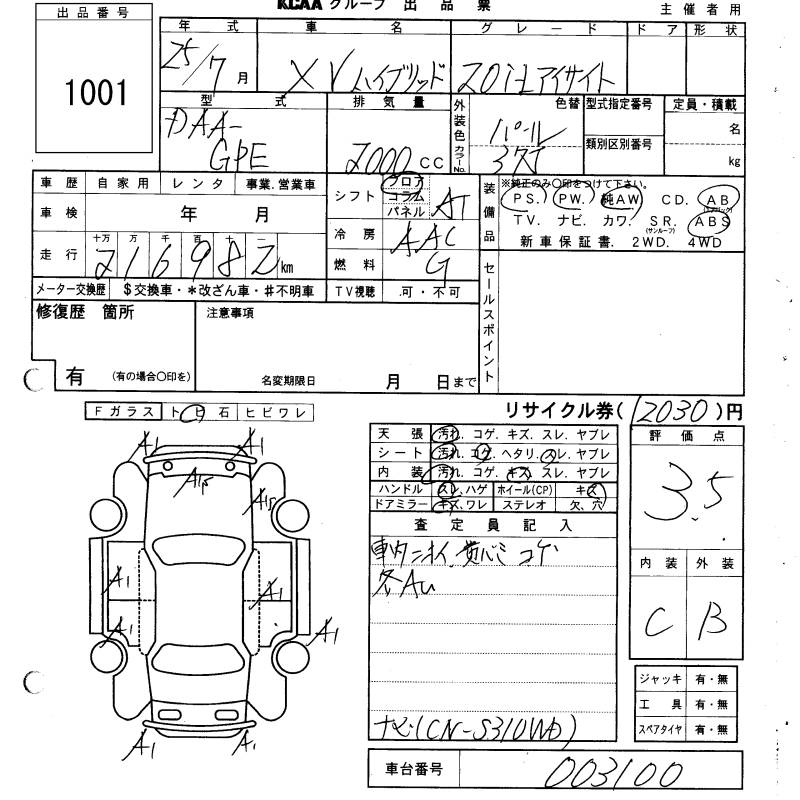 KCAA グループ 出 品 票
主催者用
出品番号
1001
年式 車名 グレード ドア 形状
25/7月 XVハイブリッド 2.0i-Lアイサイト
型式 排気量 外装色 カラーNo. 色替 型式指定番号 定員・積載
DAA-GPE 2000cc パール 3 類別区別番号 名 kg
車歴 自家用 レンタ 事業.営業車
車検 年 月
走行 十万 万 千 百 十 一
216982km
メーター交換歴 $交換車・*改ざん車・#不明車
シフト フロア コラム パネル AT
冷房 AAC
燃料 G
TV視聴 可・不可
装備品 ※純正のみ〇印をつけて下さい。
PS. PW. 純AW CD. AB (エアバック)
TV. ナビ. カワ. SR. (サンルーフ) ABS
新車保証書. 2WD. 4WD
セールスポイント
修復歴 箇所
有 (有の場合〇印を)
注意事項
名変期限日 月 日まで
リサイクル券(12030)円
Fガラス トビ石 ヒビワレ
A1 A1
A1
A1 A1
A1 A1
A1 A1
天張 汚れ. コゲ. キズ. スレ. ヤブレ
シート 汚れ. コゲ. ヘタリ. スレ. ヤブレ
内装 汚れ. コゲ. キズ. スレ. ヤブレ
ハンドル スレ.ハゲ ホイール(CP) キズ
ドアミラー キズ.ワレ ステレオ 欠.穴
査定員記入
車内ニオイ. 黄バミ コゲ
各AU
ナビ(CN-S310WD)
評価点
3.5
内装 外装
C B
ジャッキ 有・無
工具 有・無
スペアタイヤ 有・無
車台番号 003100